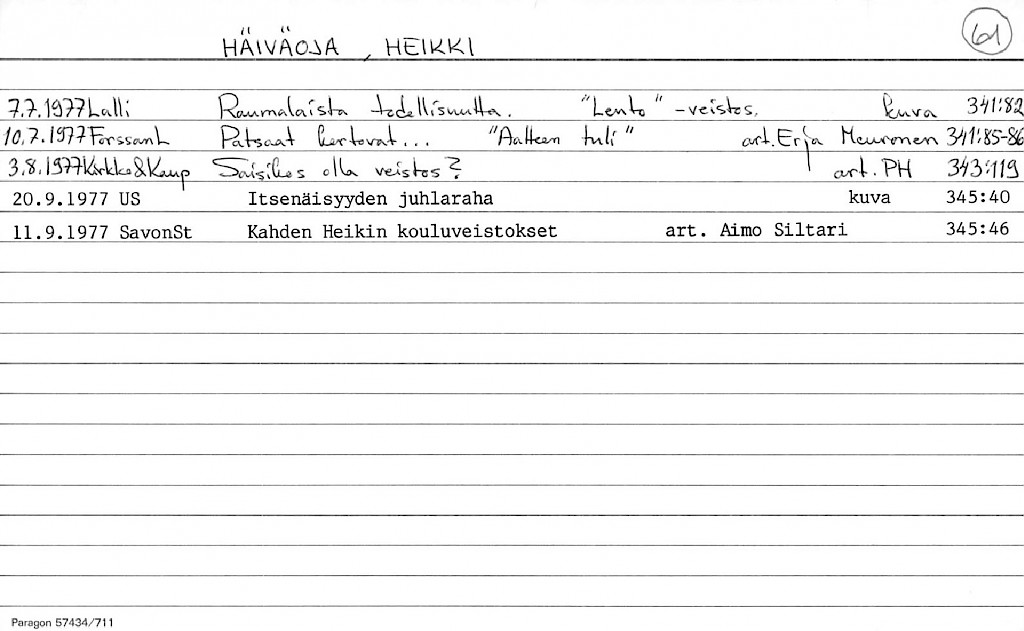 HÄIVÄOJA, HEIKKI 61
7.7.1977 Lalli Raumalaista todellisuutta. "Lento" -veistos. kuva 341:82
10.7.1977 ForssanL Patsaat kertovat... "Aatteen tuli" art. Erja Meuronen 341:85-86
3.8.1977 Kirkko&Kaup Saisikos olla veistos? art. PH 343:119
20.9.1977 US Itsenäisyyden juhlaraha kuva 345:40
11.9.1977 SavonSt Kahden Heikin kouluveistokset art. Aimo Siltari 345:46
Paragon 57434/711